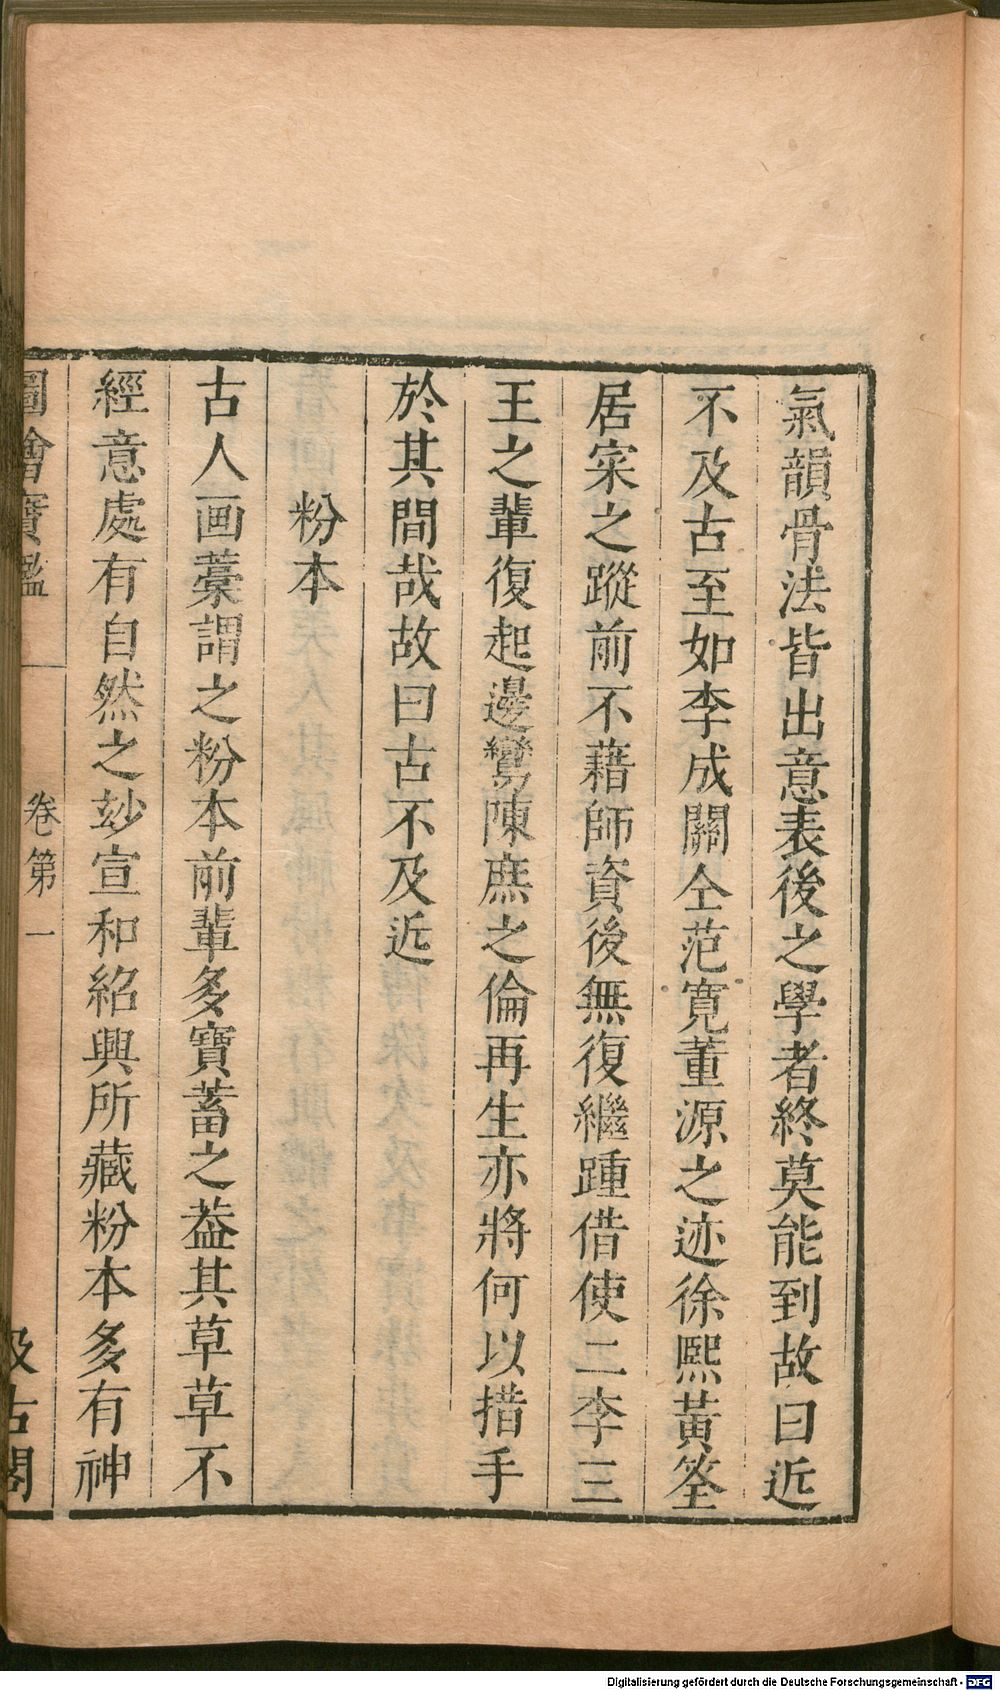 氣韻骨法皆出意表後之學者終莫能到故曰近
不及古至如李成關仝范寬董源之迹徐熙黃筌
居寀之蹤前不藉師資後無復繼踵借使二李三
王之輩復起邊鸞陳庶之倫再生亦將何以措手
於其間哉故曰古不及近
粉本
古人画藁謂之粉本前輩多寶蓄之葢其草草不
經意處有自然之玅宣和紹興所藏粉本多有神
圖繪寶鑑 卷第一 汲古閣
Digitalisierung gefördert durch die Deutsche Forschungsgemeinschaft - DFG